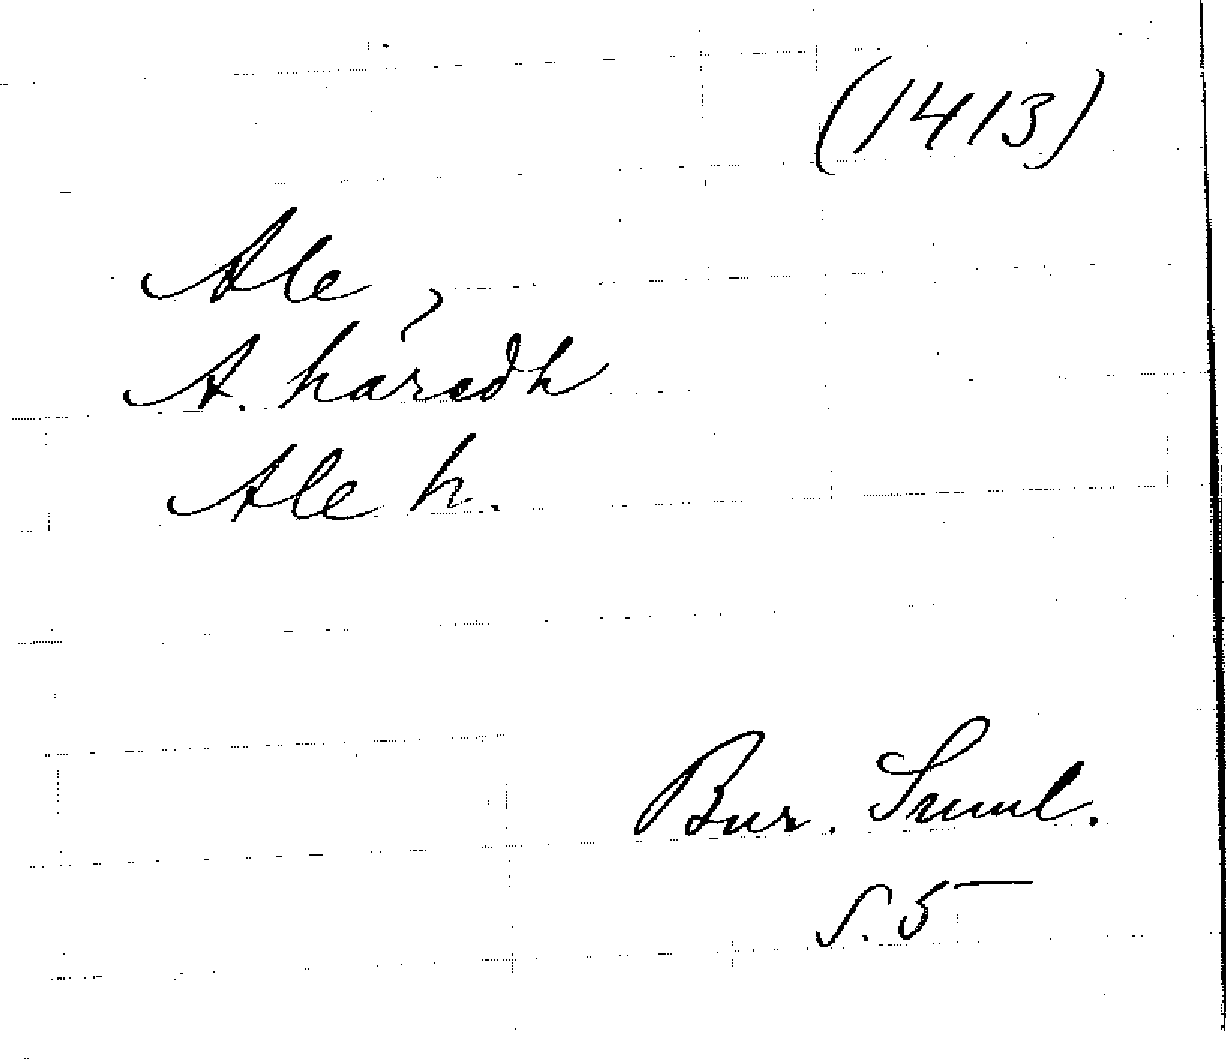 (1413)
Ale,
A. háradh
Ale h.
Bur. Smml.
s. 5